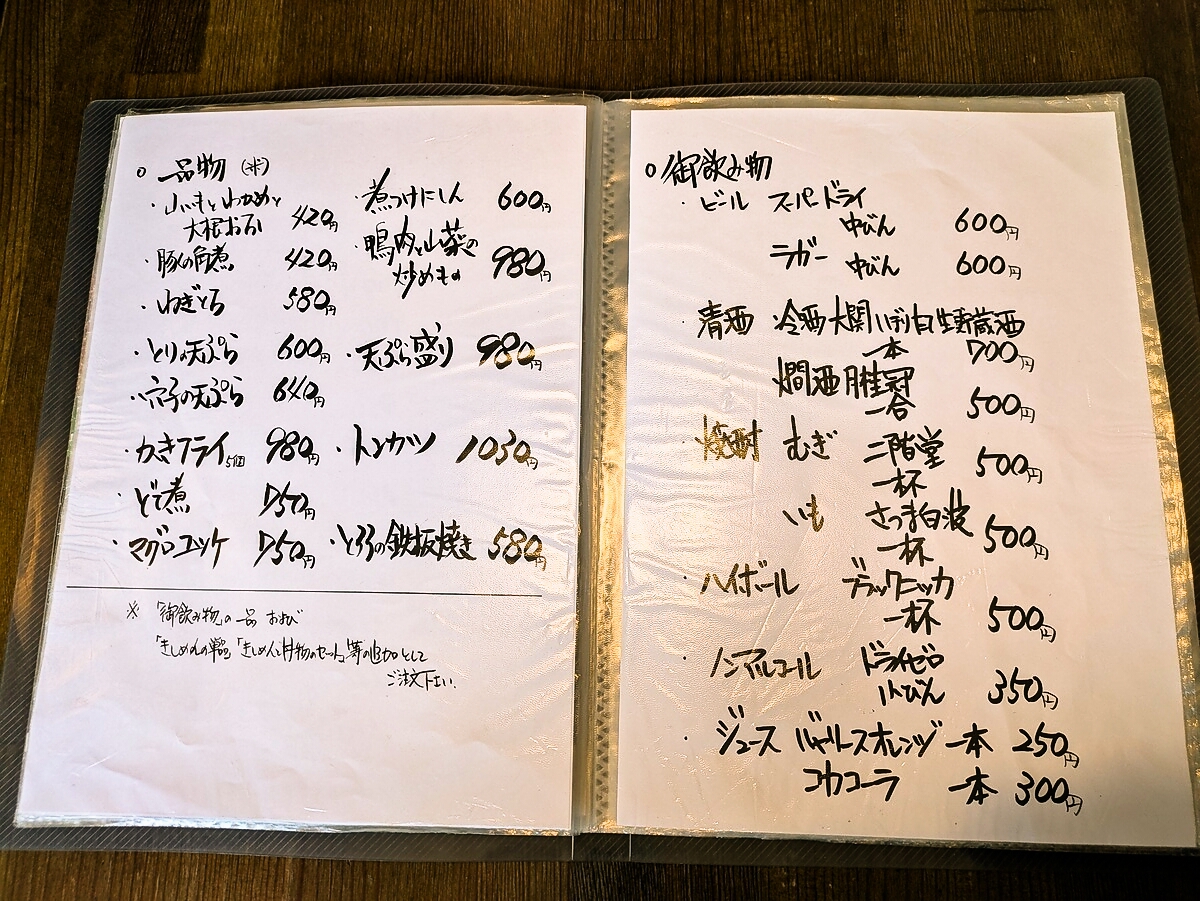 ○ 一品物 (※)
・山いもとわかめと
大根おろし 420円
・豚の角煮 420円
・ねぎとろ 580円
・とりの天ぷら 600円
・穴子の天ぷら 640円
・かきフライ 5個 980円
・どて煮 750円
・マグロユッケ 750円
・煮つけにしん 600円
・鴨肉と山菜の
炒めもの 980円
・天ぷら盛り 980円
・トンカツ 1030円
・とろろの鉄板焼き 580円
※ 「御飲み物」の一品 および
「きしめんの単品」「きしめんと丼物のセット」等の追加として
ご注文下さい。
○ 御飲み物
・ビール スーパードライ
中びん 600円
ラガー 中びん 600円
・清酒 冷酒 大関 しぼり 生貯蔵酒
一本 700円
燗酒 月桂冠
一合 500円
・焼酎 むぎ 二階堂
一杯 500円
いも さつま白波
一杯 500円
・ハイボール ブラックニッカ
一杯 500円
・ノンアルコール ドライゼロ
小びん 350円
・ジュース バヤリースオレンジ 一本 250円
コカコーラ 一本 300円